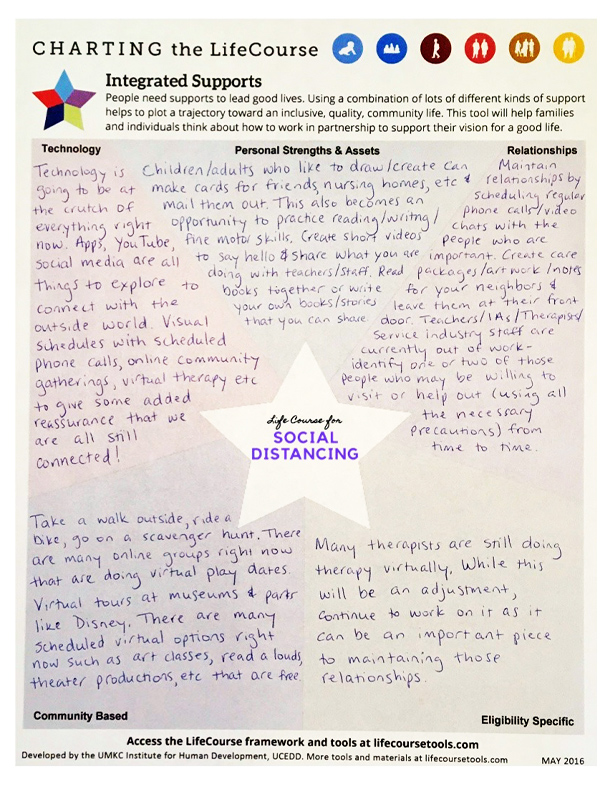 CHARTING the LifeCourse
Integrated Supports
People need supports to lead good lives. Using a combination of lots of different kinds of support
helps to plot a trajectory toward an inclusive, quality, community life. This tool will help families
and individuals think about how to work in partnership to support their vision for a good life.
Technology
Technology is
going to be at
the crutch of
everything right
now. Apps, YouTube,
social media are all
things to explore to
connect with the
outside world. Visual
schedules with scheduled
phone calls, online community
gatherings, virtual therapy etc
to give some added
reassurance that we
are all still
connected!
Personal Strengths & Assets
Children/adults who like to draw/create can
make cards for friends, nursing homes, etc &
mail them out. This also becomes an
opportunity to practice reading/writng/
fine motor skills. Create short videos
to say hello & share what you are
doing with teachers/staff. Read
books together or write
your own books/stories
that you can share
Relationships
Maintain
relationships by
scheduling regular
phone calls/video
chats with the
people who are
important. Create care
packages/art work/notes
for your neighbors &
leave them at their front
door. Teachers/IAs/Therapists/
Service industry staff are
currently out of work-
identify one or two of those
people who may be willing to
visit or help out (using all
the necessary
precautions) from
time to time.
Life Course for
SOCIAL
DISTANCING
Take a walk outside, ride a
bike, go on a scavenger hunt. There
are many online groups right now
that are doing virtual play dates.
Virtual tours at museums & parks
like Disney. There are many
scheduled virtual options right
now such as art classes, read a louds,
theater productions, etc that are free
Community Based
Many therapists are still doing
therapy virtually. While this
will be an adjustment,
continue to work on it as it
can be an important piece
to maintaining those
relationships.
Eligibility Specific
Access the LifeCourse framework and tools at lifecoursetools.com
Developed by the UMKC Institute for Human Development, UCEDD. More tools and materials at lifecoursetools.com
MAY 2016